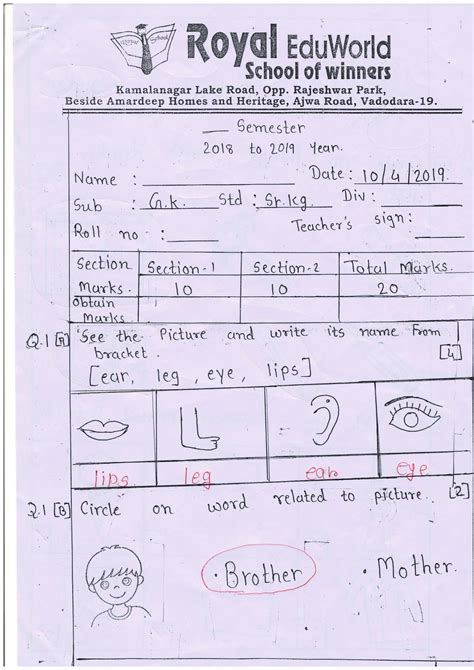 Royal School
Royal EduWorld
School of winners
Kamalanagar Lake Road, Opp. Rajeshwar Park,
Beside Amardeep Homes and Heritage, Ajwa Road, Vadodara-19.
__ Semester
2018 to 2019 Year.
Name : ____ Date : 10/4/2019.
Sub : G.k. Std : Sr.kg. Div : ____
Roll no : ____ Teacher's sign : ____
Section Section-1 Section-2 Total Marks.
Marks. 10 10 20
obtain
Marks
Q.1 [A] See the Picture and write its name from
bracket. [4]
[ear, leg, eye, lips]
lips. leg ear eye
Q.1 [B] Circle on word related to picture. [2]
. Brother . Mother.